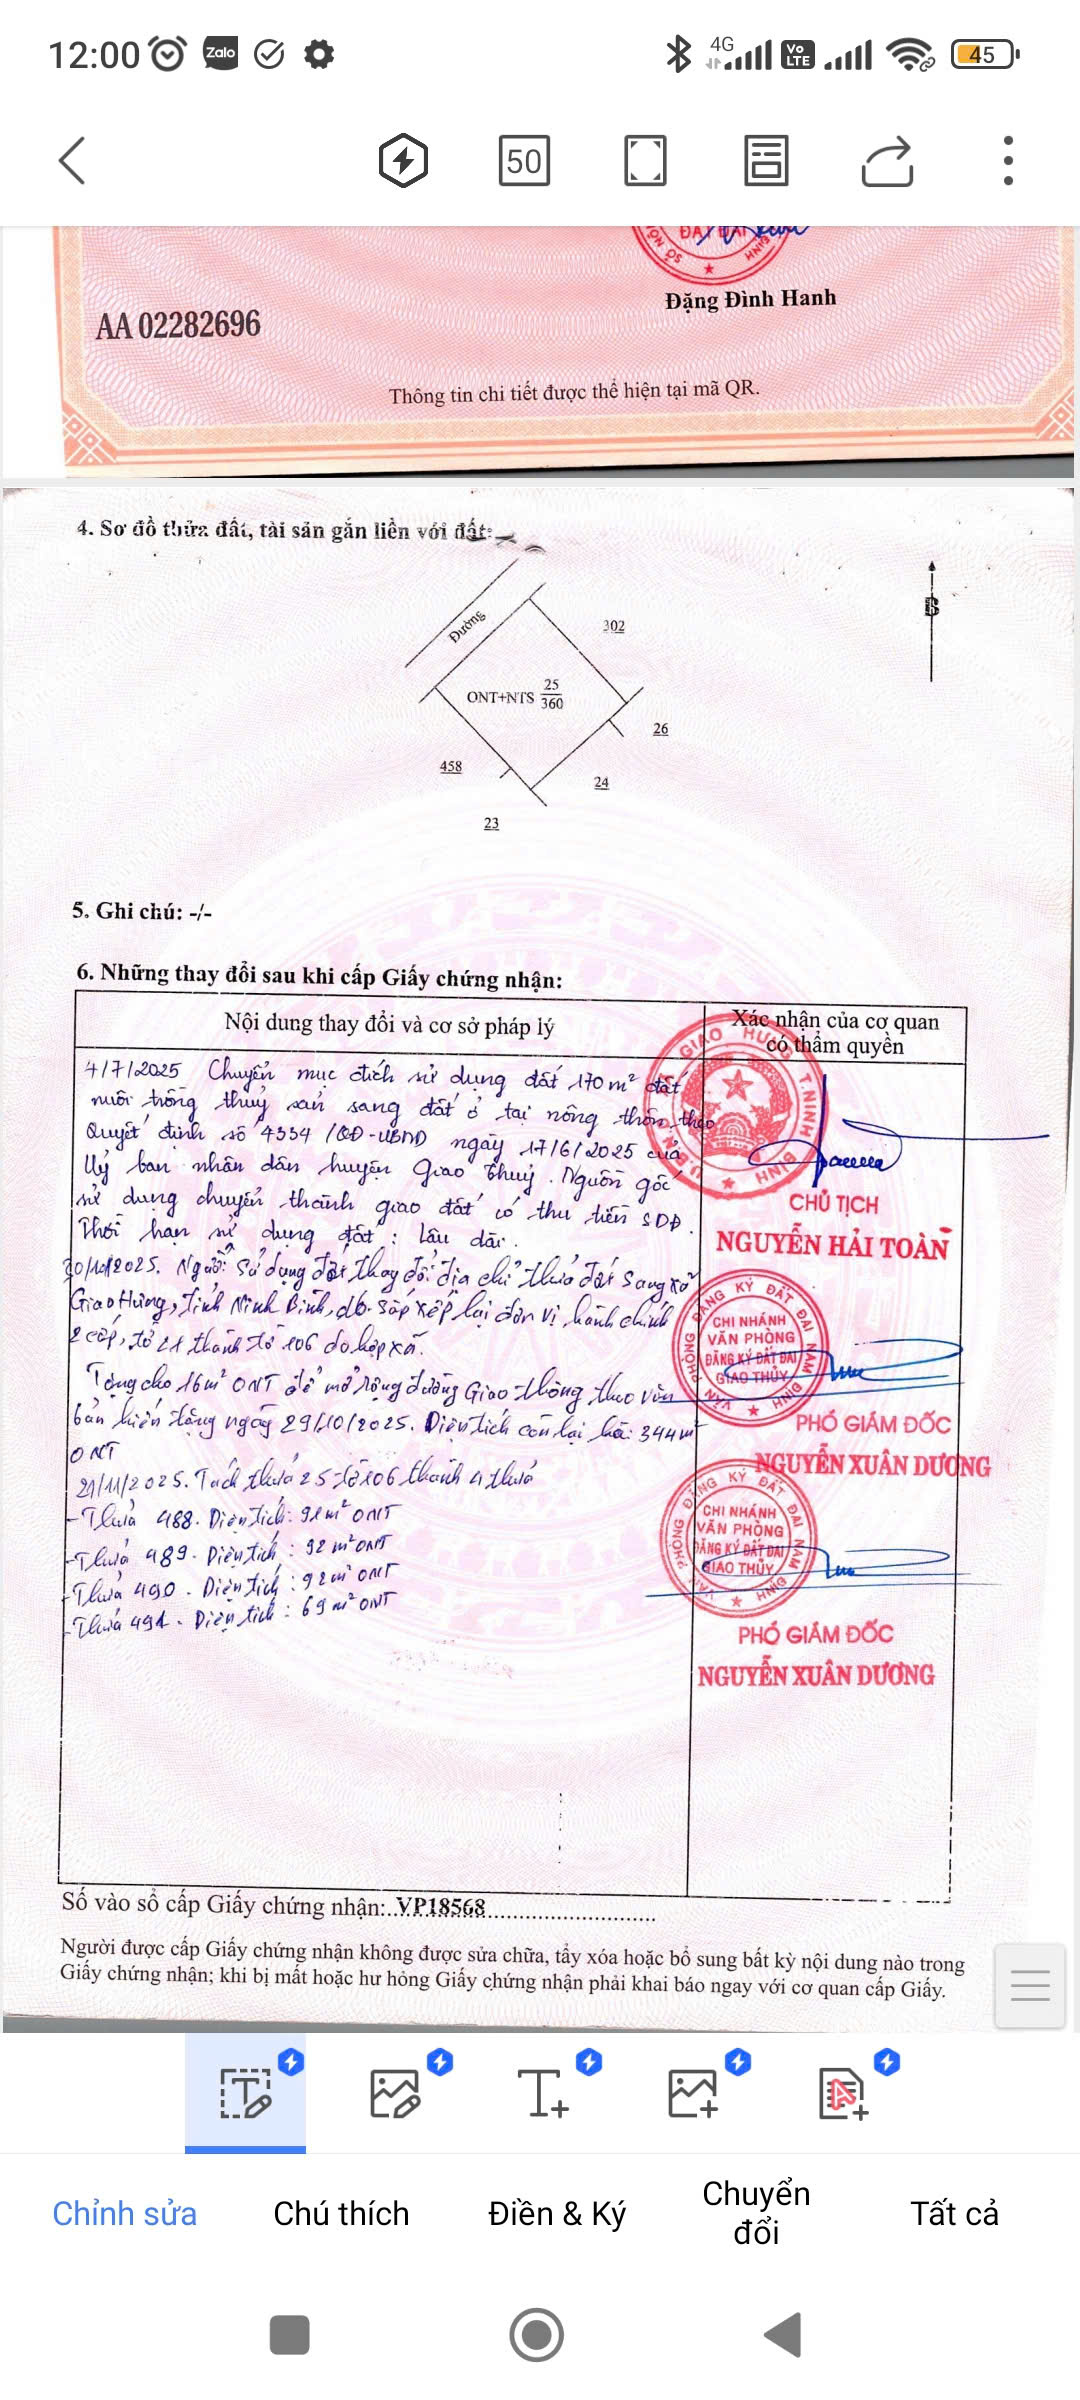 12:00
Zalo
4G
Vo
LTE
45
50
ĐẤT ĐAI
Đặng Đình Hanh
AA 02282696
Thông tin chi tiết được thể hiện tại mã QR.
4. Sơ đồ thửa đất, tài sản gắn liền với đất:
Đường
302
ONT+NTS 25/360
26
458
24
23
B
5. Ghi chú: -/-
6. Những thay đổi sau khi cấp Giấy chứng nhận:
Nội dung thay đổi và cơ sở pháp lý
Xác nhận của cơ quan
có thẩm quyền
4/7/2025 Chuyển mục đích sử dụng đất 170 m² đất
nuôi trồng thuỷ sản sang đất ở tại nông thôn theo
Quyết định số 4334 /QĐ-UBND ngày 17/6/2025 của
Uỷ ban nhân dân huyện Giao Thuỷ. Nguồn gốc
sử dụng chuyển thành giao đất có thu tiền SDĐ.
Thời hạn sử dụng đất: Lâu dài.
CHỦ TỊCH
NGUYỄN HẢI TOÀN
30/10/2025. Người sử dụng đất thay đổi địa chỉ thửa đất sang xã
Giao Hưng, tỉnh Ninh Bình, do sắp xếp lại đơn vị hành chính
2 cấp, tờ 21 thành tờ 106 do hợp xã.
Tặng cho 16m² ONT để mở rộng đường Giao thông theo văn
bản hiến tặng ngày 29/10/2025. Diện tích còn lại là: 344m²
ONT
CHI NHÁNH
VĂN PHÒNG
ĐĂNG KÝ ĐẤT ĐAI
GIAO THỦY
PHÓ GIÁM ĐỐC
NGUYỄN XUÂN DƯƠNG
21/11/2025. Tách thửa 25 tờ 106 thành 4 thửa
- Thửa 488. Diện tích: 91m² ONT
- Thửa 489. Diện tích: 92 m² ONT
- Thửa 490. Diện tích: 92m² ONT
- Thửa 491. Diện tích: 69 m² ONT
CHI NHÁNH
VĂN PHÒNG
ĐĂNG KÝ ĐẤT ĐAI
GIAO THỦY
PHÓ GIÁM ĐỐC
NGUYỄN XUÂN DƯƠNG
Số vào sổ cấp Giấy chứng nhận: VP18568
Người được cấp Giấy chứng nhận không được sửa chữa, tẩy xóa hoặc bổ sung bất kỳ nội dung nào trong
Giấy chứng nhận; khi bị mất hoặc hư hỏng Giấy chứng nhận phải khai báo ngay với cơ quan cấp Giấy.
Chỉnh sửa
Chú thích
Điền & Ký
Chuyển
đổi
Tất cả